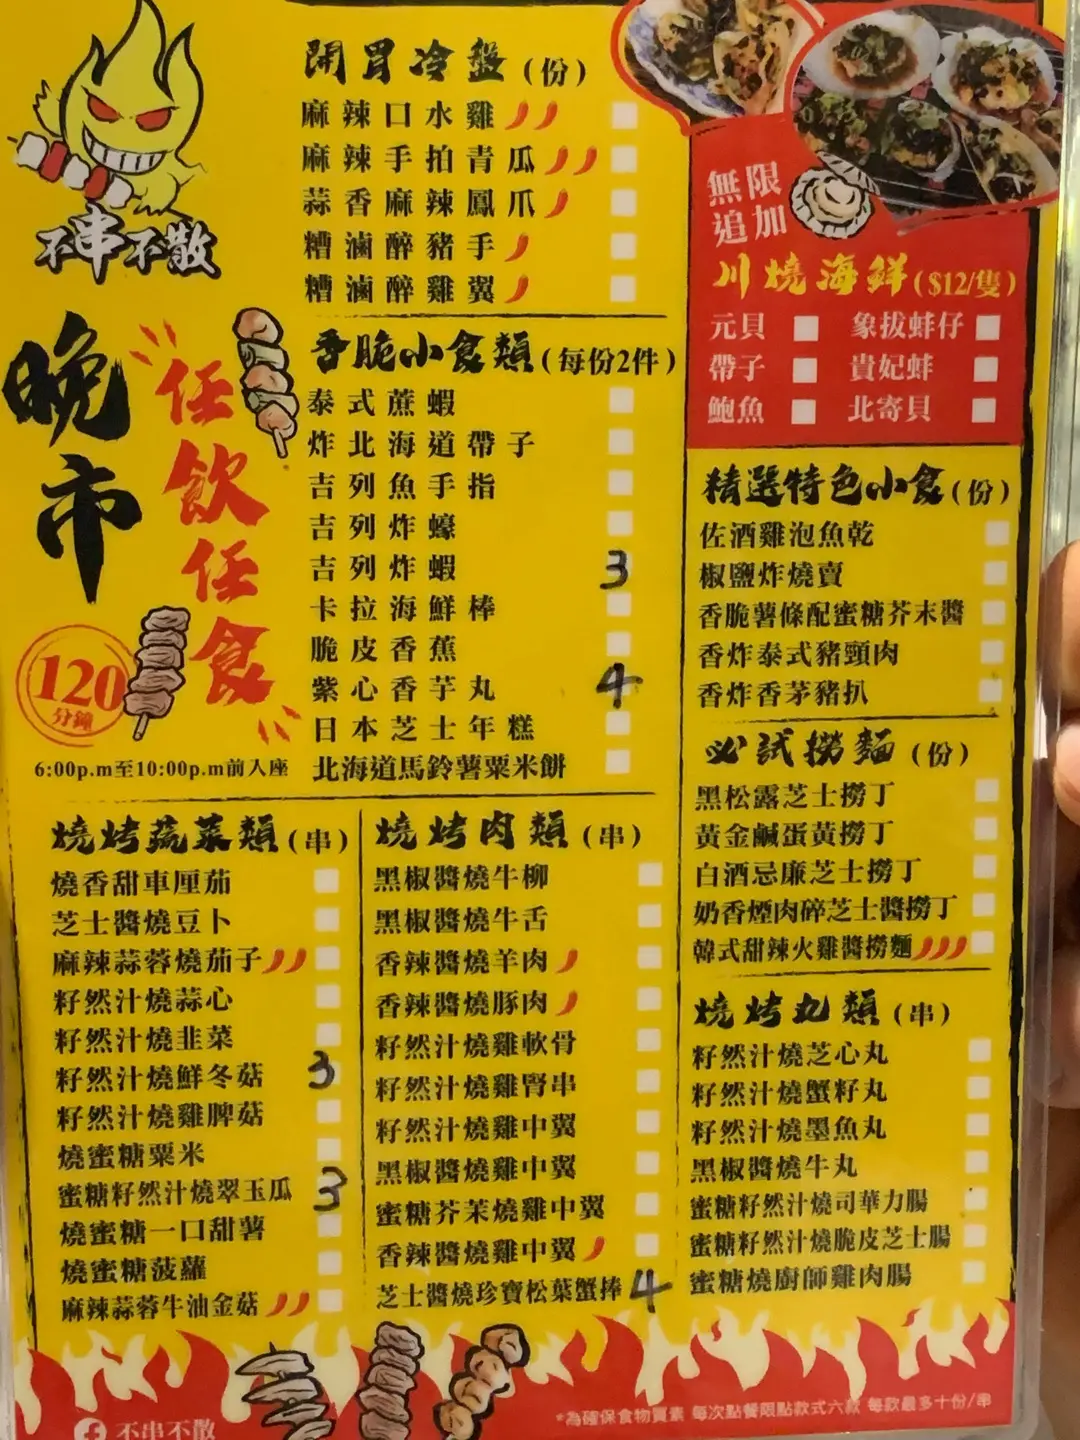 不串不散
晚市
任飲任食
120
分鐘
6:00p.m至10:00p.m前入座
開胃冷盤(份)
麻辣口水雞
麻辣手拍青瓜
蒜香麻辣鳳爪
糟滷醉豬手
糟滷醉雞翼
香脆小食類(每份2件)
泰式蔗蝦
炸北海道帶子
吉列魚手指
吉列炸蠔
吉列炸蝦 3
卡拉海鮮棒
脆皮香蕉
紫心香芋丸 4
日本芝士年糕
北海道馬鈴薯粟米餅
無限
追加
川燒海鮮($12/隻)
元貝 象拔蚌仔
帶子 貴妃蚌
鮑魚 北寄貝
精選特色小食(份)
佐酒雞泡魚乾
椒鹽炸燒賣
香脆薯條配蜜糖芥末醬
香炸泰式豬頸肉
香炸香茅豬扒
必試撈麵(份)
黑松露芝士撈丁
黃金鹹蛋黃撈丁
白酒忌廉芝士撈丁
奶香煙肉碎芝士醬撈丁
韓式甜辣火雞醬撈麵
燒烤蔬菜類(串)
燒香甜車厘茄
芝士醬燒豆卜
麻辣蒜蓉燒茄子
籽然汁燒蒜心
籽然汁燒韭菜
籽然汁燒鮮冬菇 3
籽然汁燒雞脾菇
燒蜜糖粟米
蜜糖籽然汁燒翠玉瓜 3
燒蜜糖一口甜薯
燒蜜糖菠蘿
麻辣蒜蓉牛油金菇
燒烤肉類(串)
黑椒醬燒牛柳
黑椒醬燒牛舌
香辣醬燒羊肉
香辣醬燒豚肉
籽然汁燒雞軟骨
籽然汁燒雞腎串
籽然汁燒雞中翼
黑椒醬燒雞中翼
蜜糖芥茉燒雞中翼
香辣醬燒雞中翼
芝士醬燒珍寶松葉蟹捧 4
燒烤丸類(串)
籽然汁燒芝心丸
籽然汁燒蟹籽丸
籽然汁燒墨魚丸
黑椒醬燒牛丸
蜜糖籽然汁燒司華力腸
蜜糖籽然汁燒脆皮芝士腸
蜜糖燒廚師雞肉腸
不串不散
*為確保食物質素 每次點餐限點款式六款 每款最多十份/串